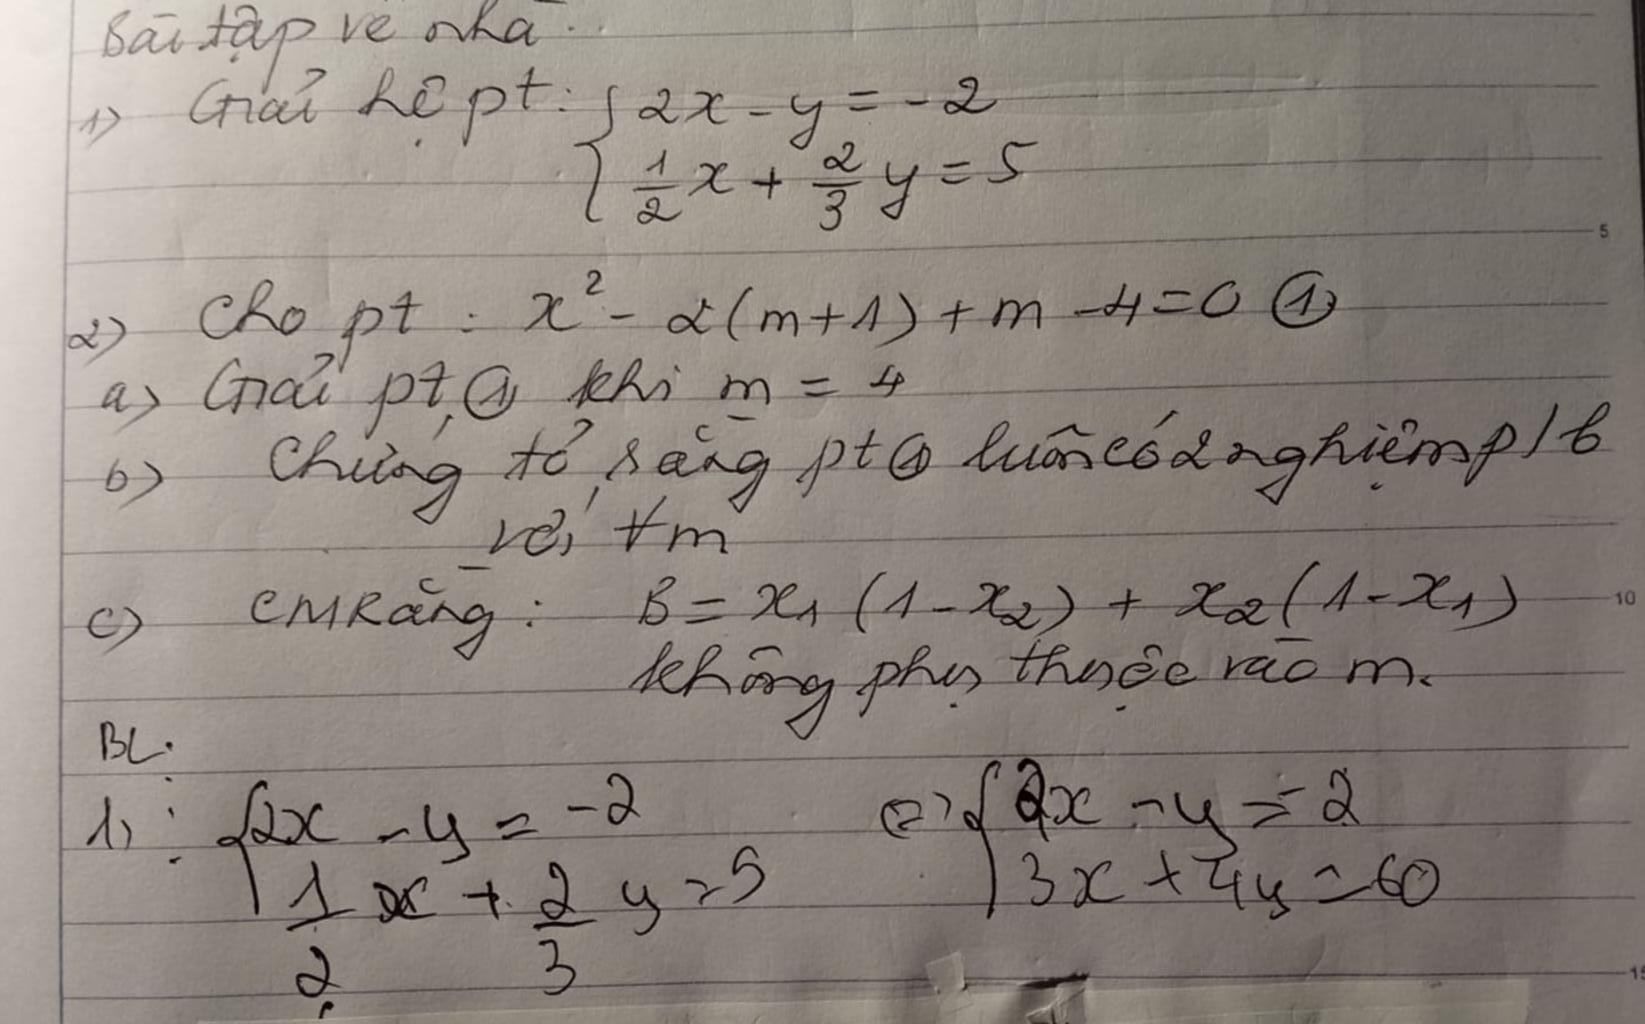 Bài tập về nhà.
1) Giải hệ pt: { 2x - y = -2
1/2 x + 2/3 y = 5
5
2) Cho pt : x² - 2(m+1) + m - 4 = 0 ①
a) Giải pt ① khi m = 4
b) Chứng tỏ rằng pt ① luôn có 2 nghiệm p/b
với ∀m
c) CMRằng : B = x₁ (1 - x₂) + x₂ (1 - x₁)
10
không phụ thuộc vào m.
BL:
1) : { 2x - y = -2 <=> { 2x - y = -2
1/2 x + 2/3 y = 5 3x + 4y = 60
15